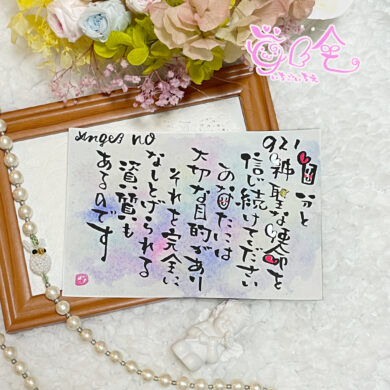 Angel NO
921
自分と
神聖な使命を
信じ続けてください
あなたには
大切な目的があり
それを完全に
なしとげられる
資質も
あるのです